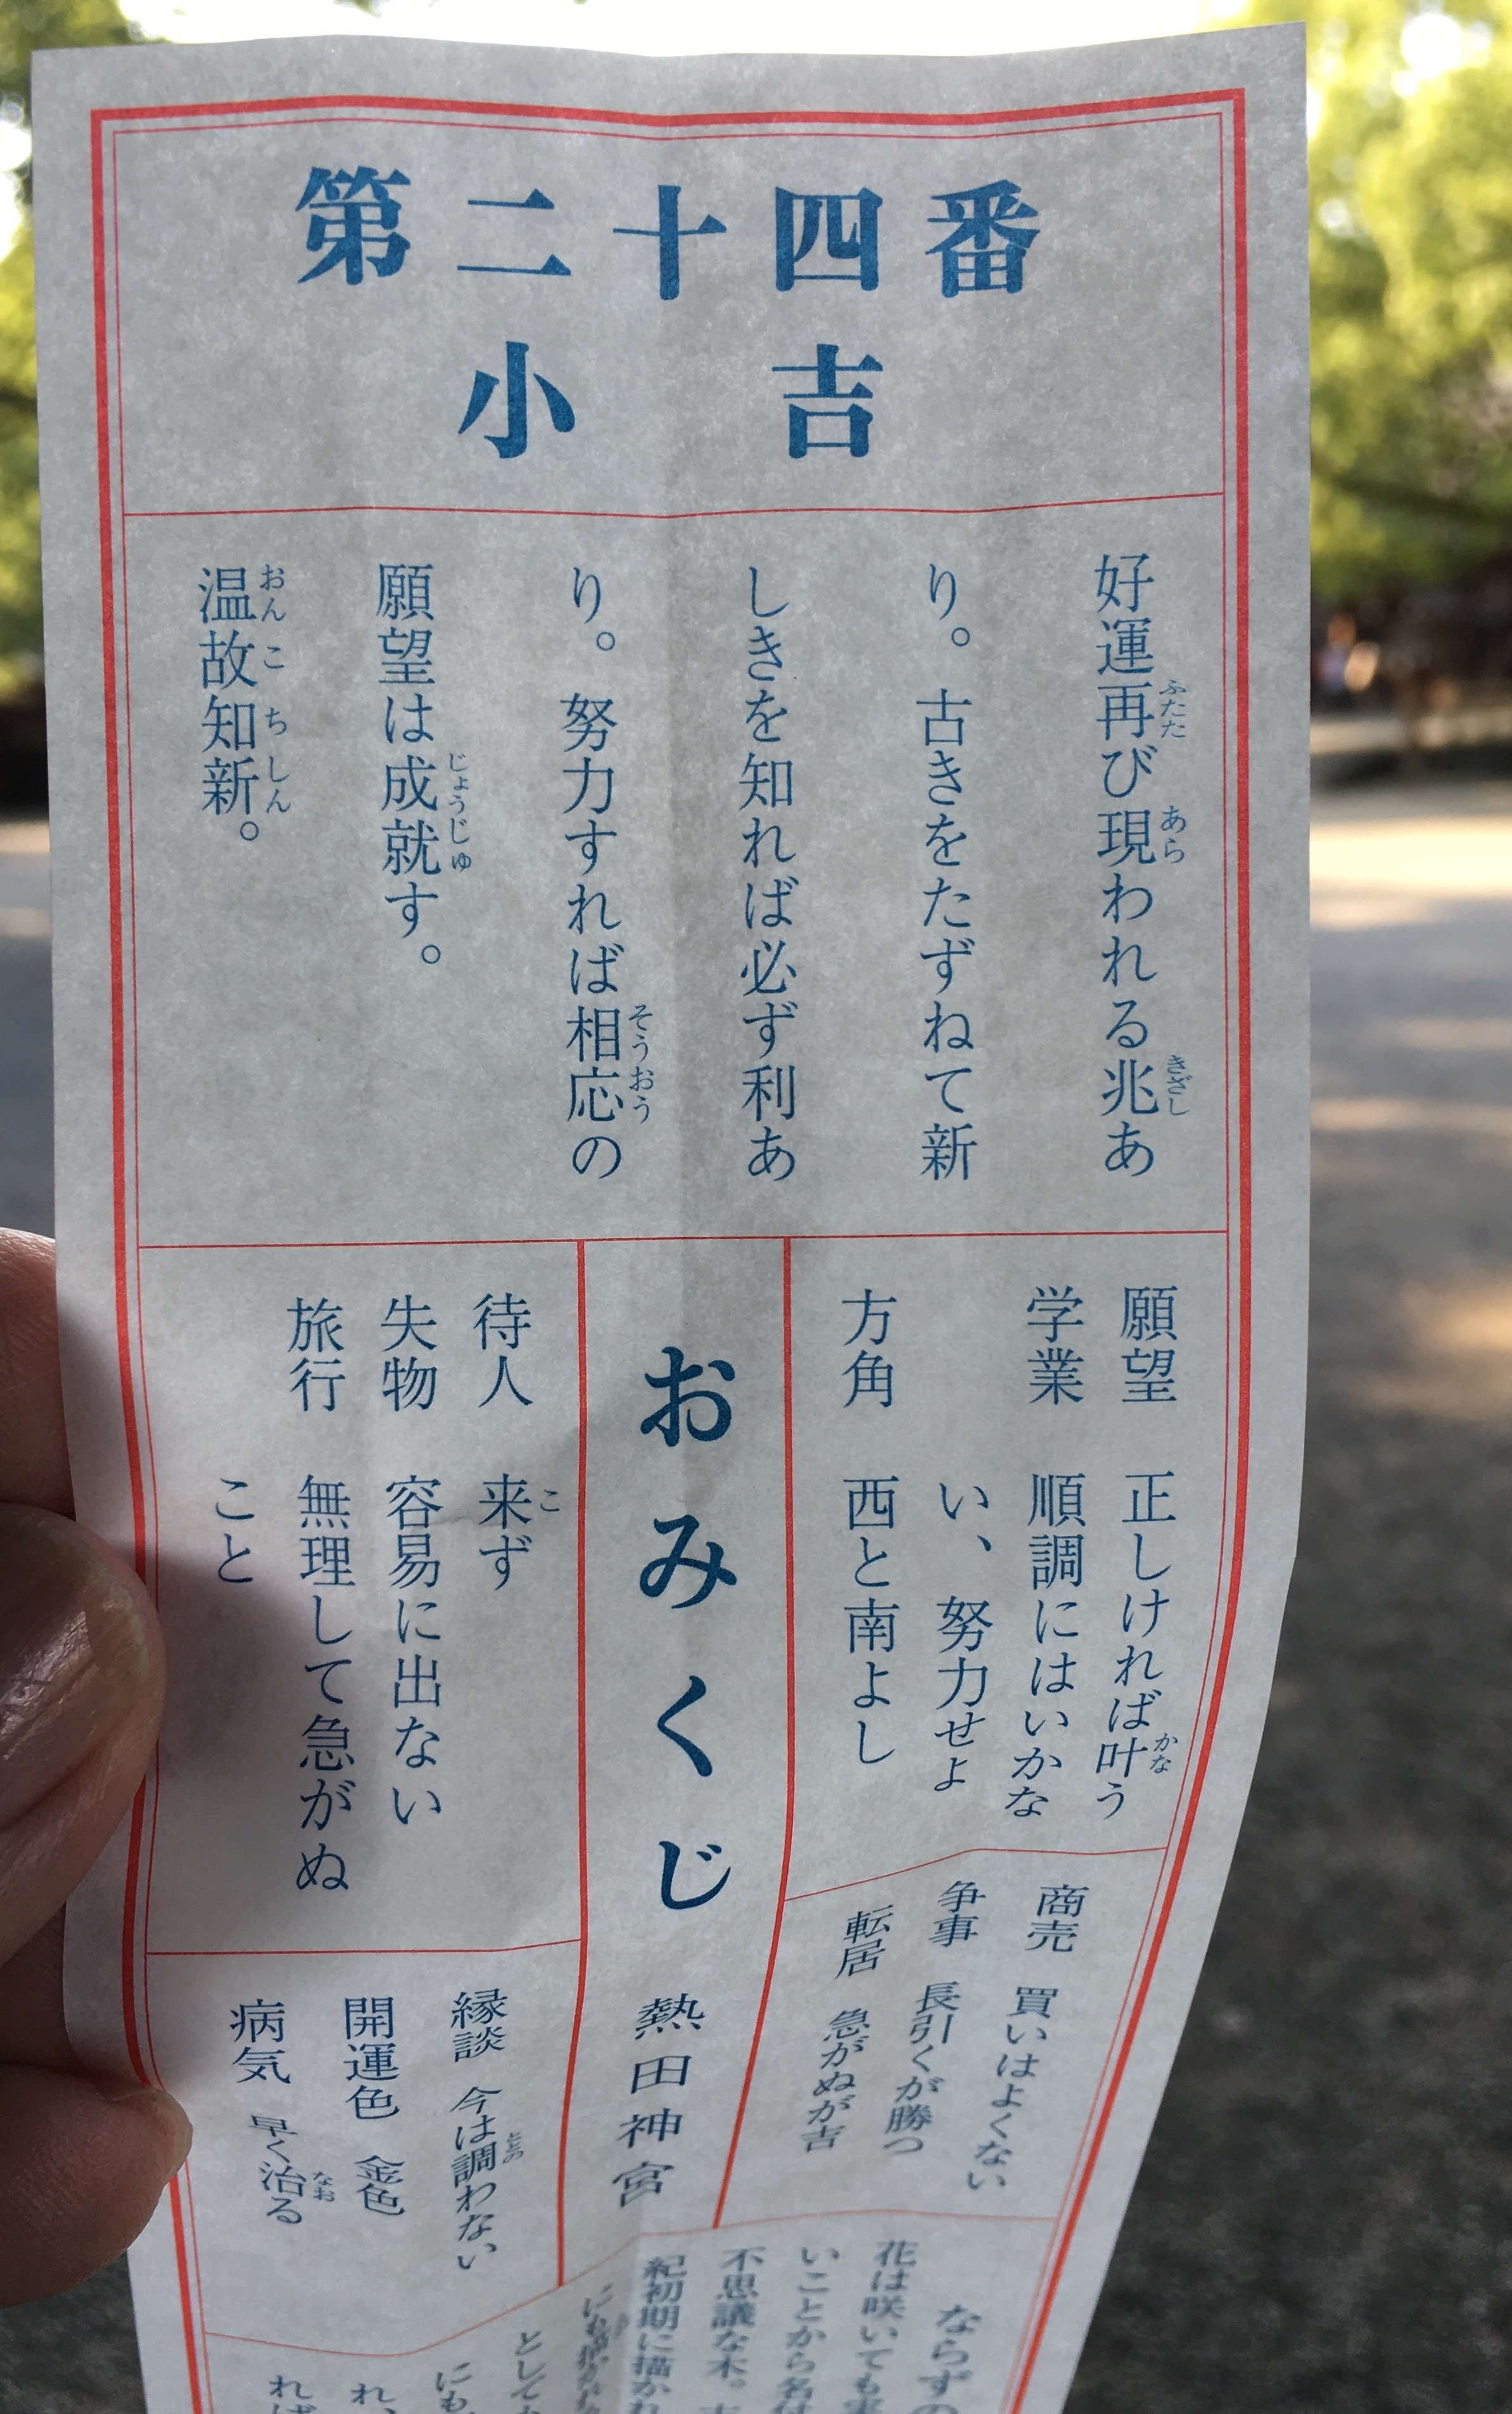 第二十四番
小吉
好運再び現われる兆あ
り。古きをたずねて新
しきを知れば必ず利あ
り。努力すれば相応の
願望は成就す。
温故知新。
願望 正しければ叶う
学業 順調にはいかな
い、努力せよ
方角 西と南よし
商売 買いはよくない
争事 長引くが勝つ
転居 急がぬが吉
おみくじ 熱田神宮
待人 来ず
失物 容易に出ない
旅行 無理して急がぬ
こと
縁談 今は調わない
開運色 金色
病気 早く治る
ならずの
花は咲いても
いことから名付
不思議な木。
紀初期に描かれ
として
にも
れ
れば